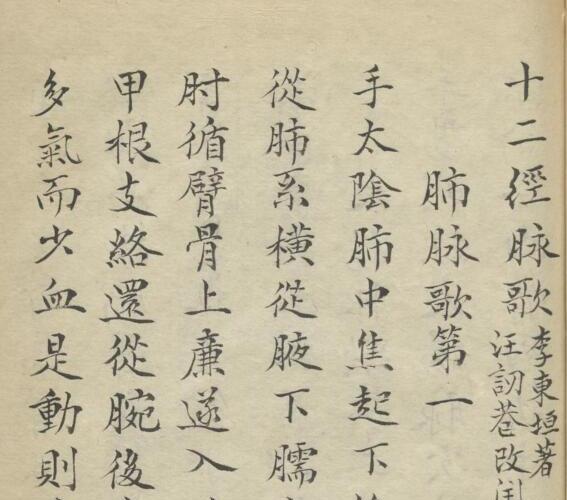 十二徑脉歌
李東垣著
汪訒菴改
肺脉歌第一
手太陰肺中焦起下
從肺系橫從腋下臑
肘循臂骨上廉遂入
甲根支絡還從腕後
多氣而少血是動則